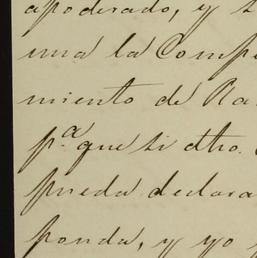 apoderado, y s
una la Compe
miento de Ra
p.ª que si dho.
pueda declara
ponda, y yo